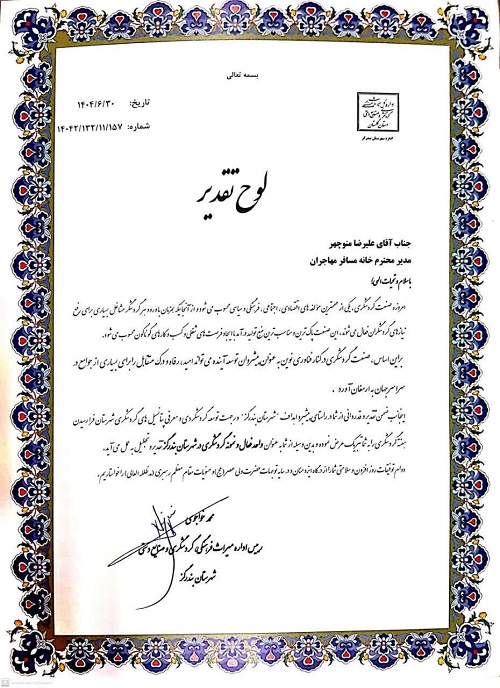 بسمه تعالی
تاریخ: ۱۴۰۴/۶/۳۰
شماره: ۱۴۰۴۲/۱۳۳/۱۱/۱۵۷
استان گلستان
اداره شهرستان بندرگز
لوح تقدیر
جناب آقای علیرضا منوچهر
مدیر محترم خانه مسافر مهاجران
با سلام و تحیات الهی؛
امروزه صنعت گردشگری، یکی از مهمترین مولفه های اقتصادی، اجتماعی، فرهنگی و سیاسی محسوب می شود و از آنجائیکه همزمان با ورود هر گردشگر مشاغل بسیاری برای رفع
نیازهای گردشگران فعال می شوند، این صنعت پاک ترین و مناسب ترین منبع تولید درآمد با ایجاد فرصت های شغلی و کسب و کارهای گوناگون محسوب می شود.
بر این اساس، صنعت گردشگری در کنار فناوری نوین به عنوان پیشروان توسعه آینده می تواند امید، رفاه و درک متقابل را برای بسیاری از جوامع در
سراسر جهان به ارمغان آورد.
اینجانب ضمن تقدیر و قدردانی از شما در راستای پیشبرد اهداف "شهرستان بندرگز" در جهت توسعه گردشگری و معرفی پتانسیل های گردشگری شهرستان فرا رسیدن
هفته گردشگری را به شما تبریک عرض نموده و بدین وسیله از شما به عنوان واحد فعال و نمونه گردشگری در شهرستان بندرگز تقدیر و تجلیل به عمل می آید.
دوام توفیقات روز افزون و سلامتی شما را از درگاه ایزد منان و در سایه توجهات حضرت ولی عصر (عج) و منویات مقام معظم رهبری (مدظله العالی) را خواستاریم.
محمد خواجوی
رییس اداره میراث فرهنگی، گردشگری و صنایع دستی
شهرستان بندرگز